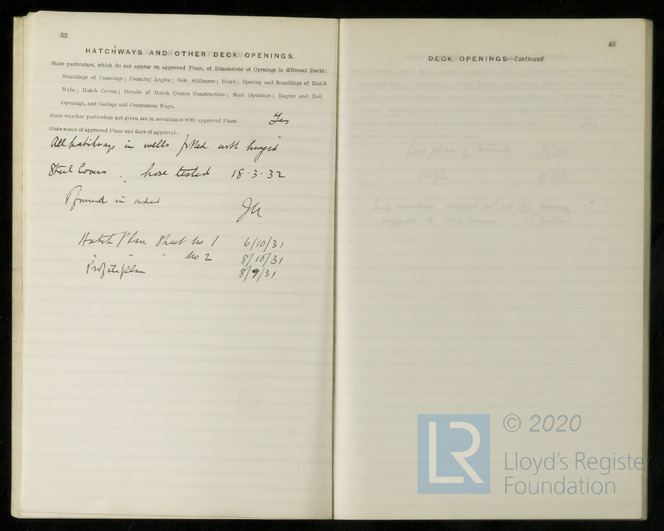 52
HATCHWAYS AND OTHER DECK OPENINGS.
State particulars, which do not appear on approved Plans, of Dimensions of Openings in different Decks;
Scantlings of Coamings; Coaming Angles; Side Stiffeners; Stays; Spacing and Scantlings of Hatch
Webs; Hatch Covers; Details of Hatch Corner Construction; Mast Openings; Engine and Boiler
Openings, and Casings and Companion Ways.
State whether particulars not given are in accordance with approved Plans. Yes
State name of approved Plans and date of approval.
All hatchways in wells fitted with hinged
Steel Covers. hose tested 18.3.32
& found in order
Hatch Plan Sheet no 1 6/10/31
" " " no 2 8/10/31
Profile plan 8/9/31
53
DECK OPENINGS—Continued.
LR
© 2020
Lloyd's Register
Foundation